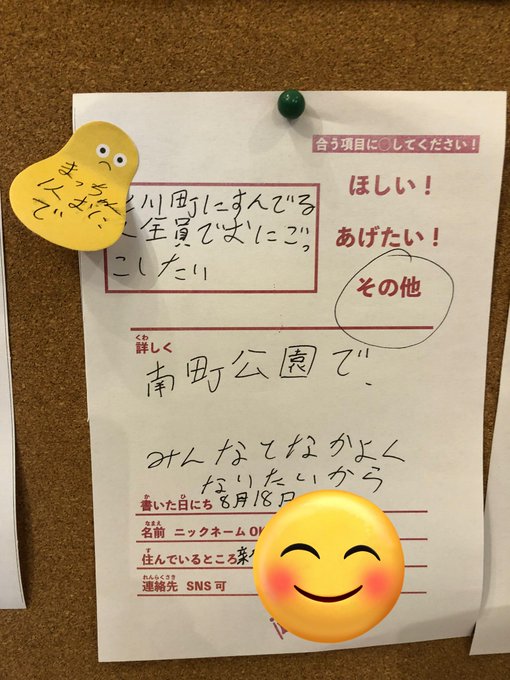 合う項目に○してください！
ほしい！
あげたい！
その他
川町にすんでる
全員でおにごっ
こしたい
くわ
詳しく
南町公園で、
みんなてなかよく
なりたいから
か ひ
書いた日にち 8月18日
なまえ
名前 ニックネーム
す
住んでいるところ
れんらくさき
連絡先 SNS可